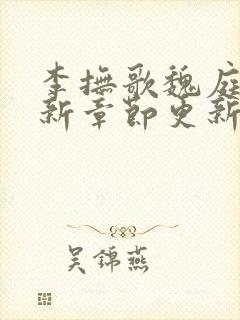 李撫歌魏庭
新章節更新
吴錦燕